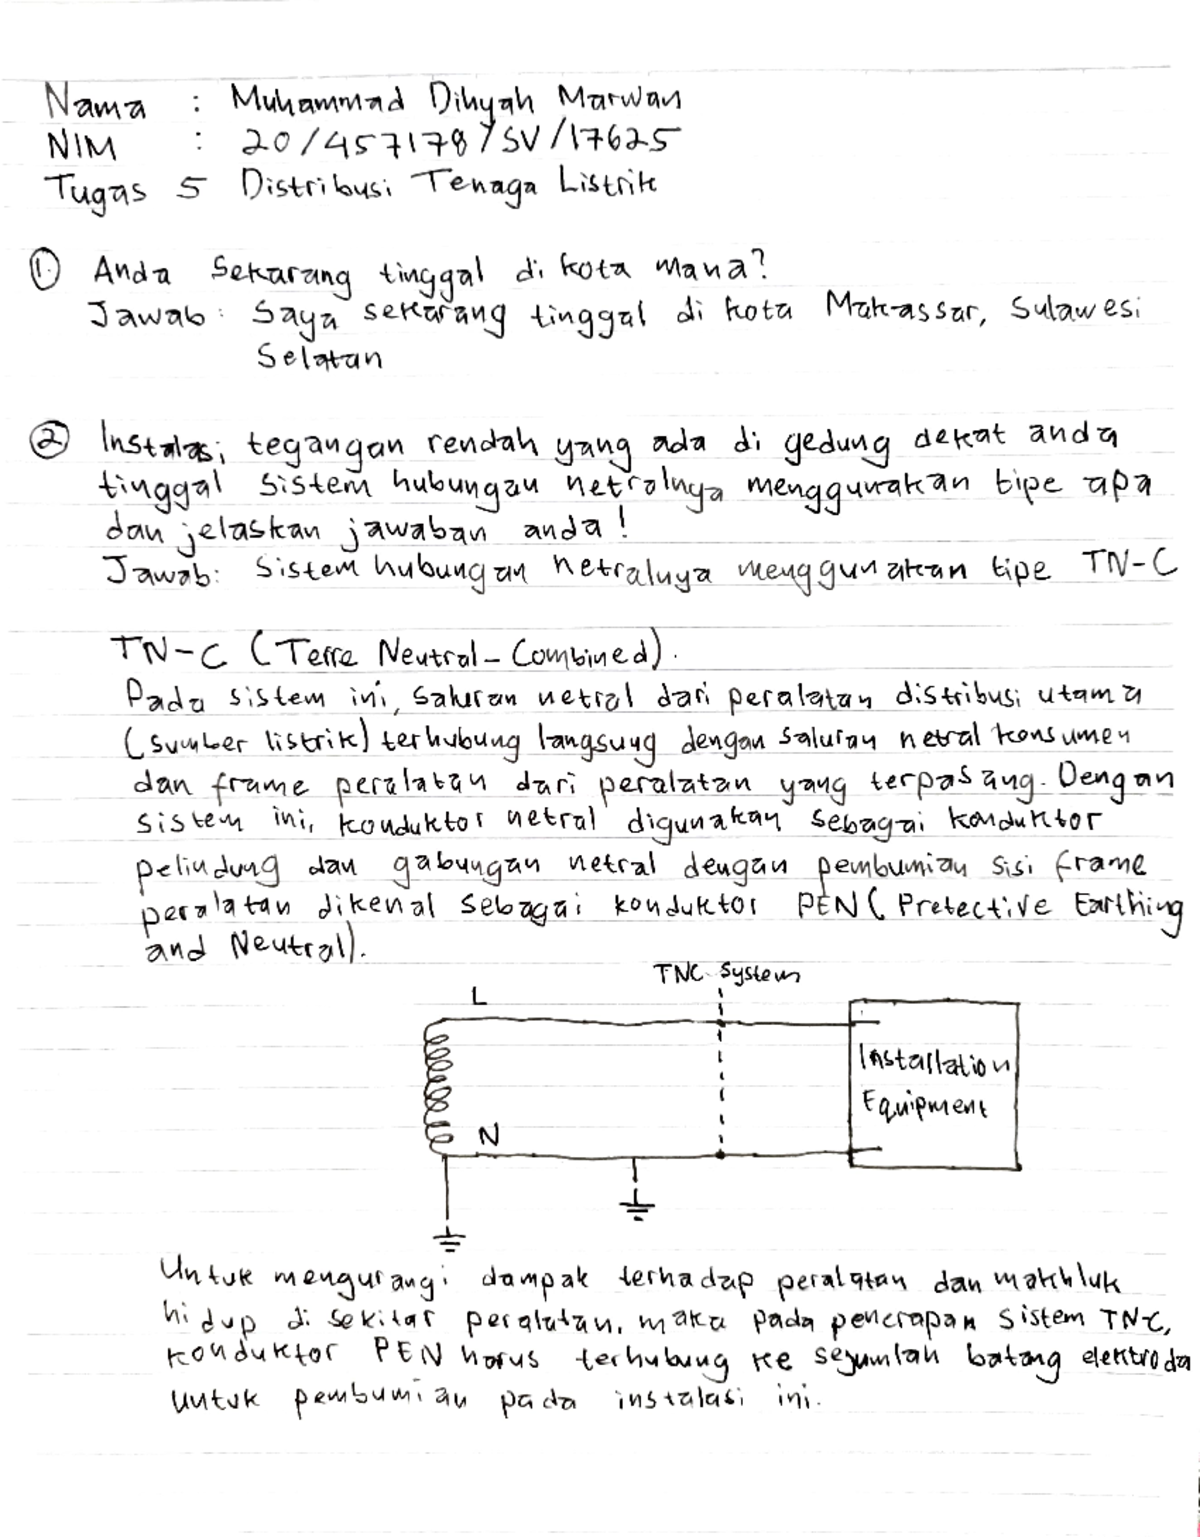 Nama : Muhammad Dihyah Marwan
NIM : 20/457178/SV/17625
Tugas 5 Distribusi Tenaga Listrik
1. Anda Sekarang tinggal di kota mana?
Jawab: Saya sekarang tinggal di kota Makassar, Sulawesi
Selatan
2 Instalasi tegangan rendah yang ada di gedung dekat anda
tinggal sistem hubungan netralnya menggunakan tipe apa
dan jelaskan jawaban anda!
Jawab: Sistem hubungan netralnya menggunakan tipe TN-C
TN-C (Terre Neutral-Combined).
Pada sistem ini, saluran netral dari peralatan distribusi utama
(sumber listrik) terhubung langsung dengan saluran netral konsumen
dan frame peralatan dari peralatan yang terpasang. Dengan
sistem ini, konduktor netral digunakan sebagai konduktor
pelindung dan gabungan netral dengan pembumian sisi frame
peralatan dikenal sebagai konduktor PEN (Pretective Earthing
and Neutral).
TNC System
L
Installation
Equipment
N
Untuk mengurangi dampak terhadap peralatan dan makhluk
hidup di sekitar peralatan, maka pada penerapan sistem TNC,
konduktor PEN harus terhubung ke sejumlah batang elektroda
untuk pembumian pada instalasi ini.